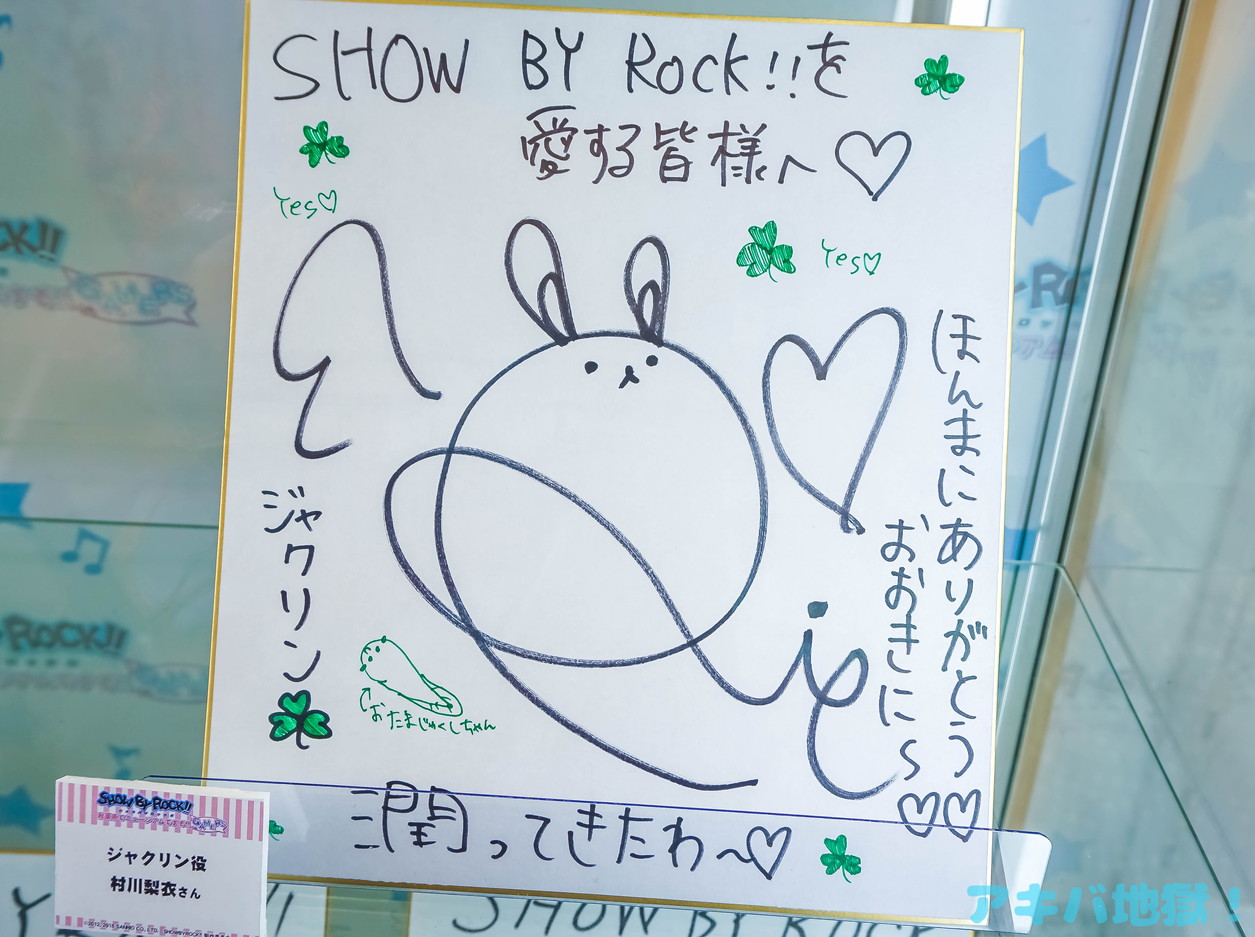 SHOW BY Rock!!を
愛する皆様へ♡
Yes♡
Yes♡
ほんまにありがとう♡♡
おおきに〜
ジャクリン
おたまじゃくしちゃん
潤ってきたわ〜♡
SHOW BY ROCK!!
GAMERS
ジャクリン役
村川梨衣さん
SHOW BY ROCK
CK!!
ROCK!!
アキバ地獄！